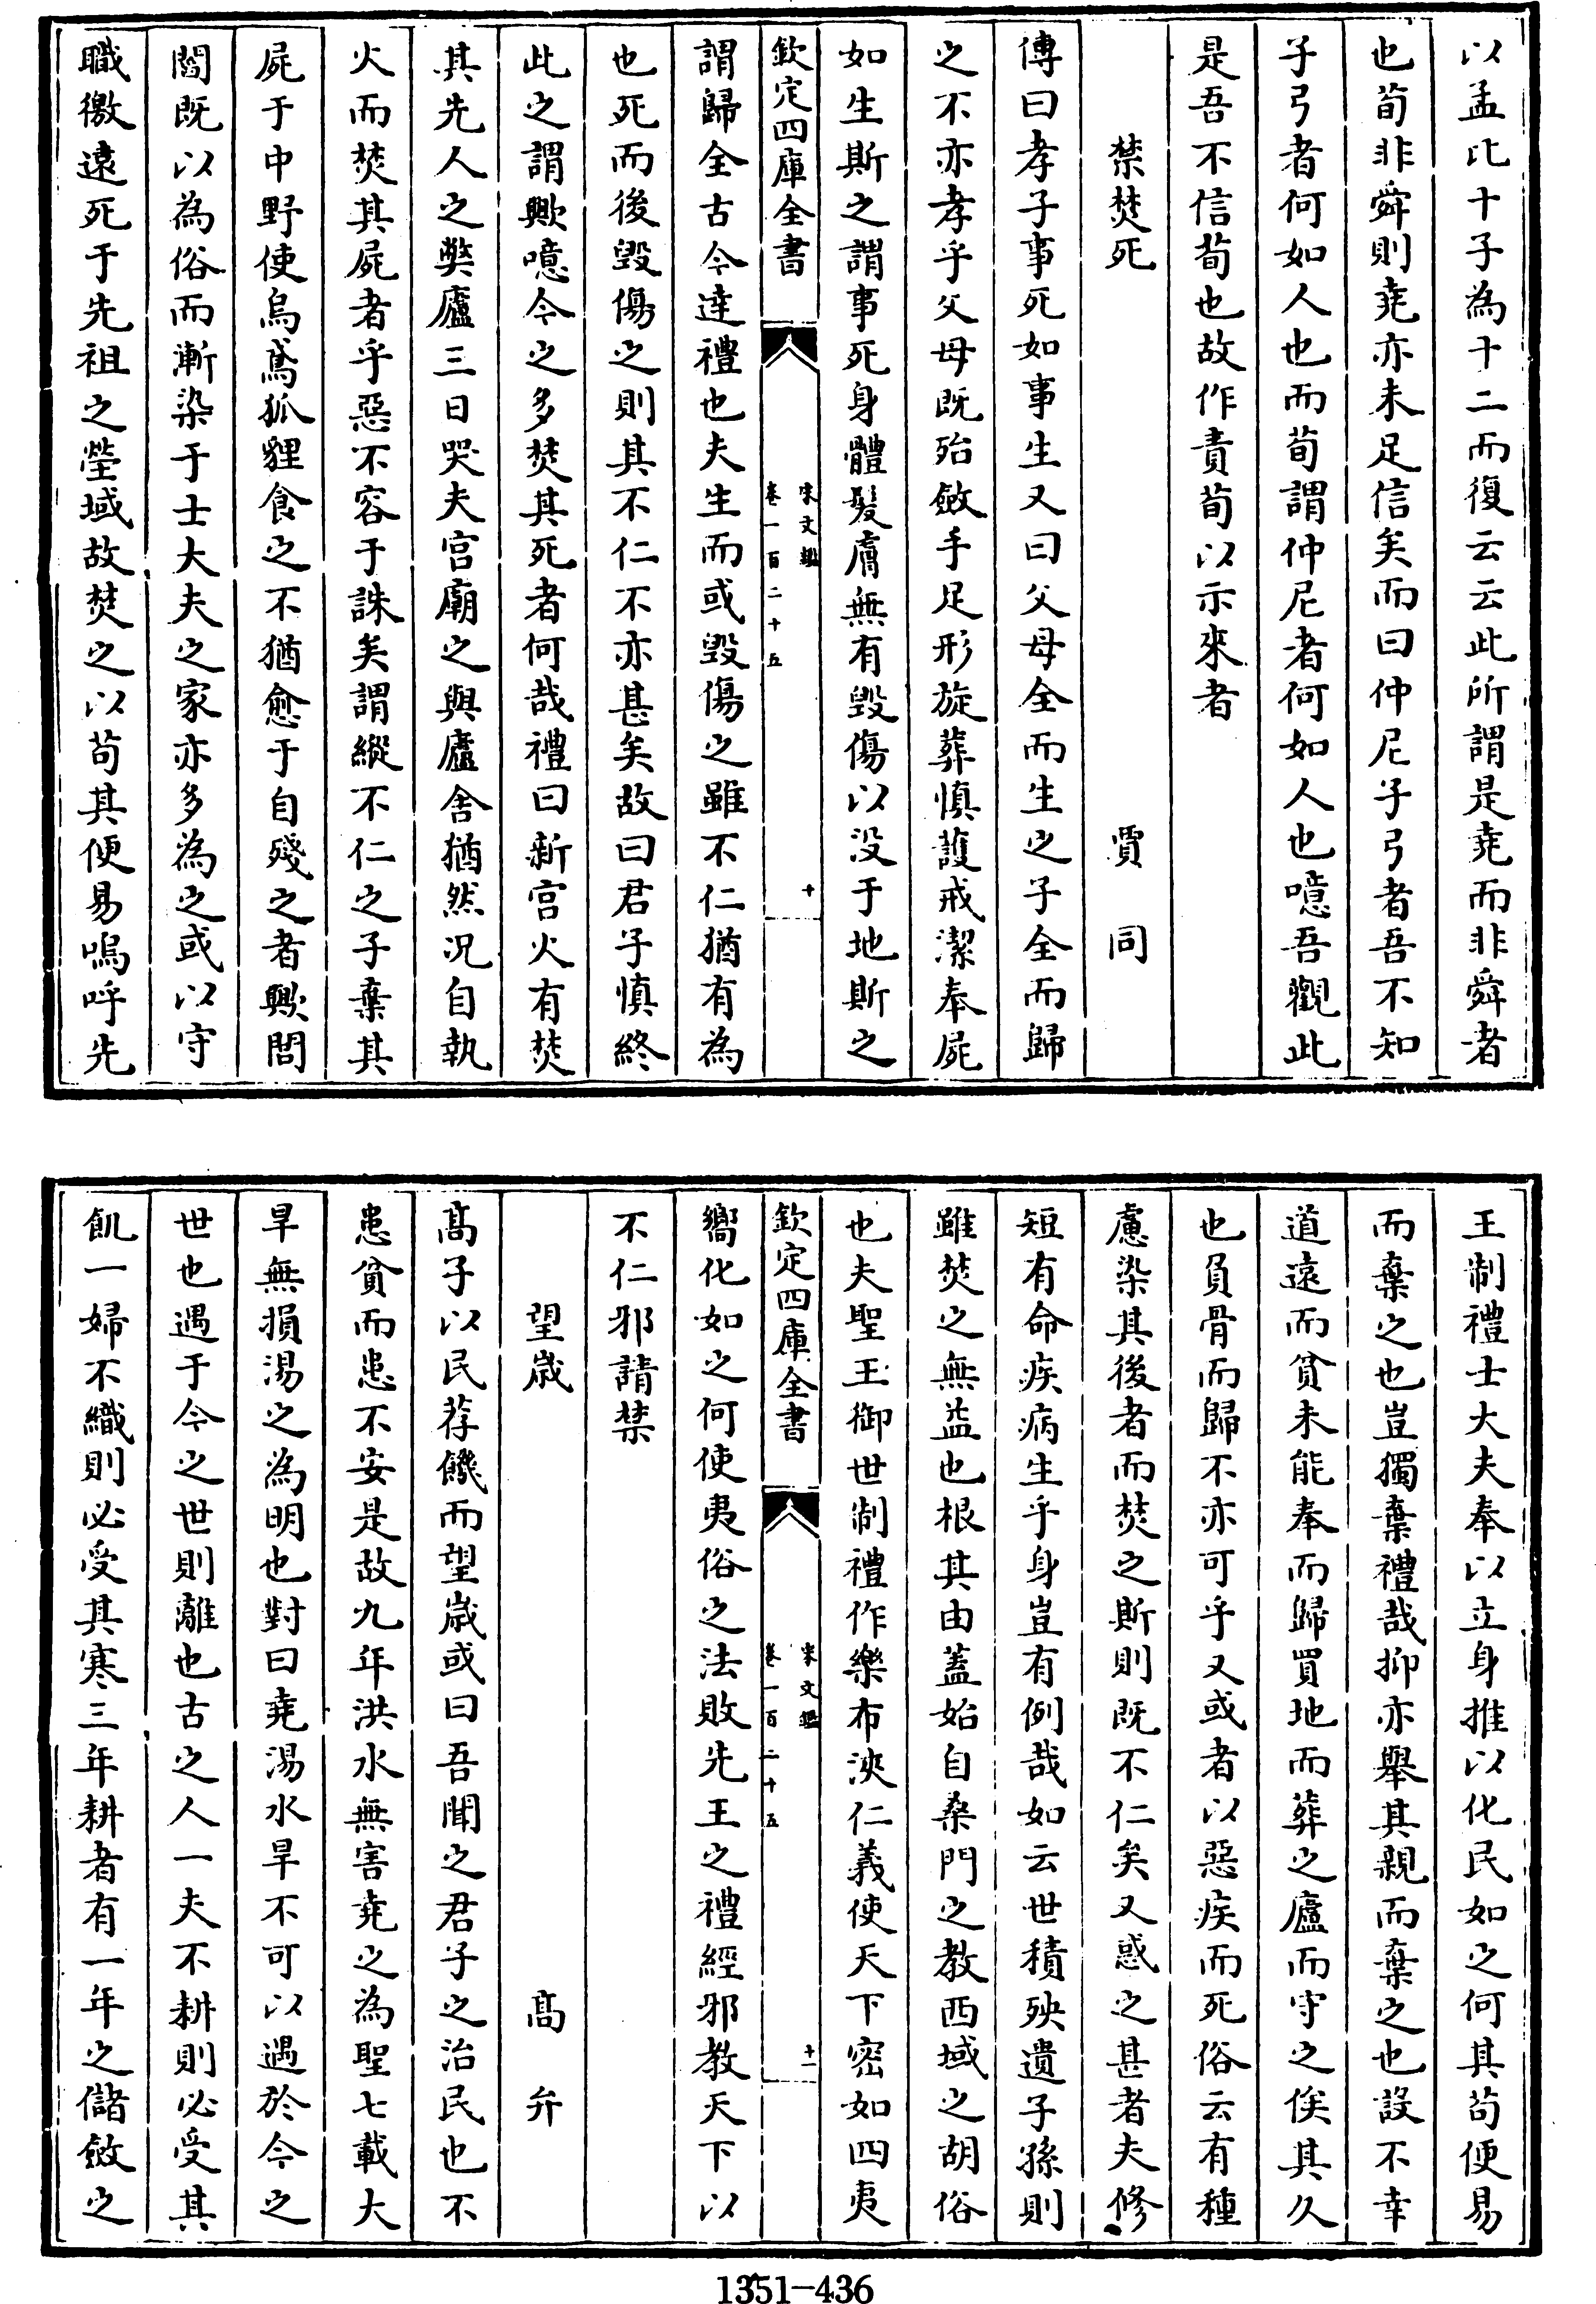 以孟比十子為十二而復云云此所謂是堯而非舜者
也荀非舜則堯亦未足信矣而曰仲尼子弓者吾不知
子弓者何如人也而荀謂仲尼者何如人也噫吾觀此
是吾不信荀也故作責荀以示來者
禁焚死 賈同
傳曰孝子事死如事生又曰父母全而生之子全而歸
之不亦孝乎父母既殆斂手足形旋葬慎護戒潔奉屍
如生斯之謂事死身體髮膚無有毀傷以没于地斯之
欽定四庫全書 宋文鑑 卷一百二十五 十
謂歸全古今達禮也夫生而或毀傷之雖不仁猶有為
也死而後毀傷之則其不仁不亦甚矣故曰君子慎終
此之謂歟噫今之多焚其死者何哉禮曰新宫火有焚
其先人之獘廬三日哭夫宫廟之與廬舍猶然况自執
火而焚其屍者乎惡不容于誅矣謂縱不仁之子棄其
屍于中野使烏鳶狐貍食之不猶愈于自殘之者歟問
閻既以為俗而漸染于士大夫之家亦多為之或以守
職徼遠死于先祖之塋域故焚之以苟其便易嗚呼先
王制禮士大夫奉以立身推以化民如之何其苟便易
而棄之也豈獨棄禮哉抑亦舉其親而棄之也設不幸
道遠而貧未能奉而歸買地而葬之廬而守之俟其久
也負骨而歸不亦可乎又或者以惡疾而死俗云有種
慮染其後者而焚之斯則既不仁矣又惑之甚者夫修
短有命疾病生乎身豈有例哉如云世積殃遺子孫則
雖焚之無益也根其由蓋始自桑門之教西域之胡俗
也夫聖王御世制禮作樂布浹仁義使天下密如四夷
欽定四庫全書 宋文鑑 卷一百二十五 十一
嚮化如之何使夷俗之法敗先王之禮經邪教天下以
不仁邪請禁
望歲 髙弁
髙子以民荐饑而望歲或曰吾聞之君子之治民也不
患貧而患不安是故九年洪水無害堯之為聖七載大
旱無損湯之為明也對曰堯湯水旱不可以遇於今之
世也遇于今之世則離也古之人一夫不耕則必受其
飢一婦不織則必受其寒三年耕者有一年之儲斂之
1351-436